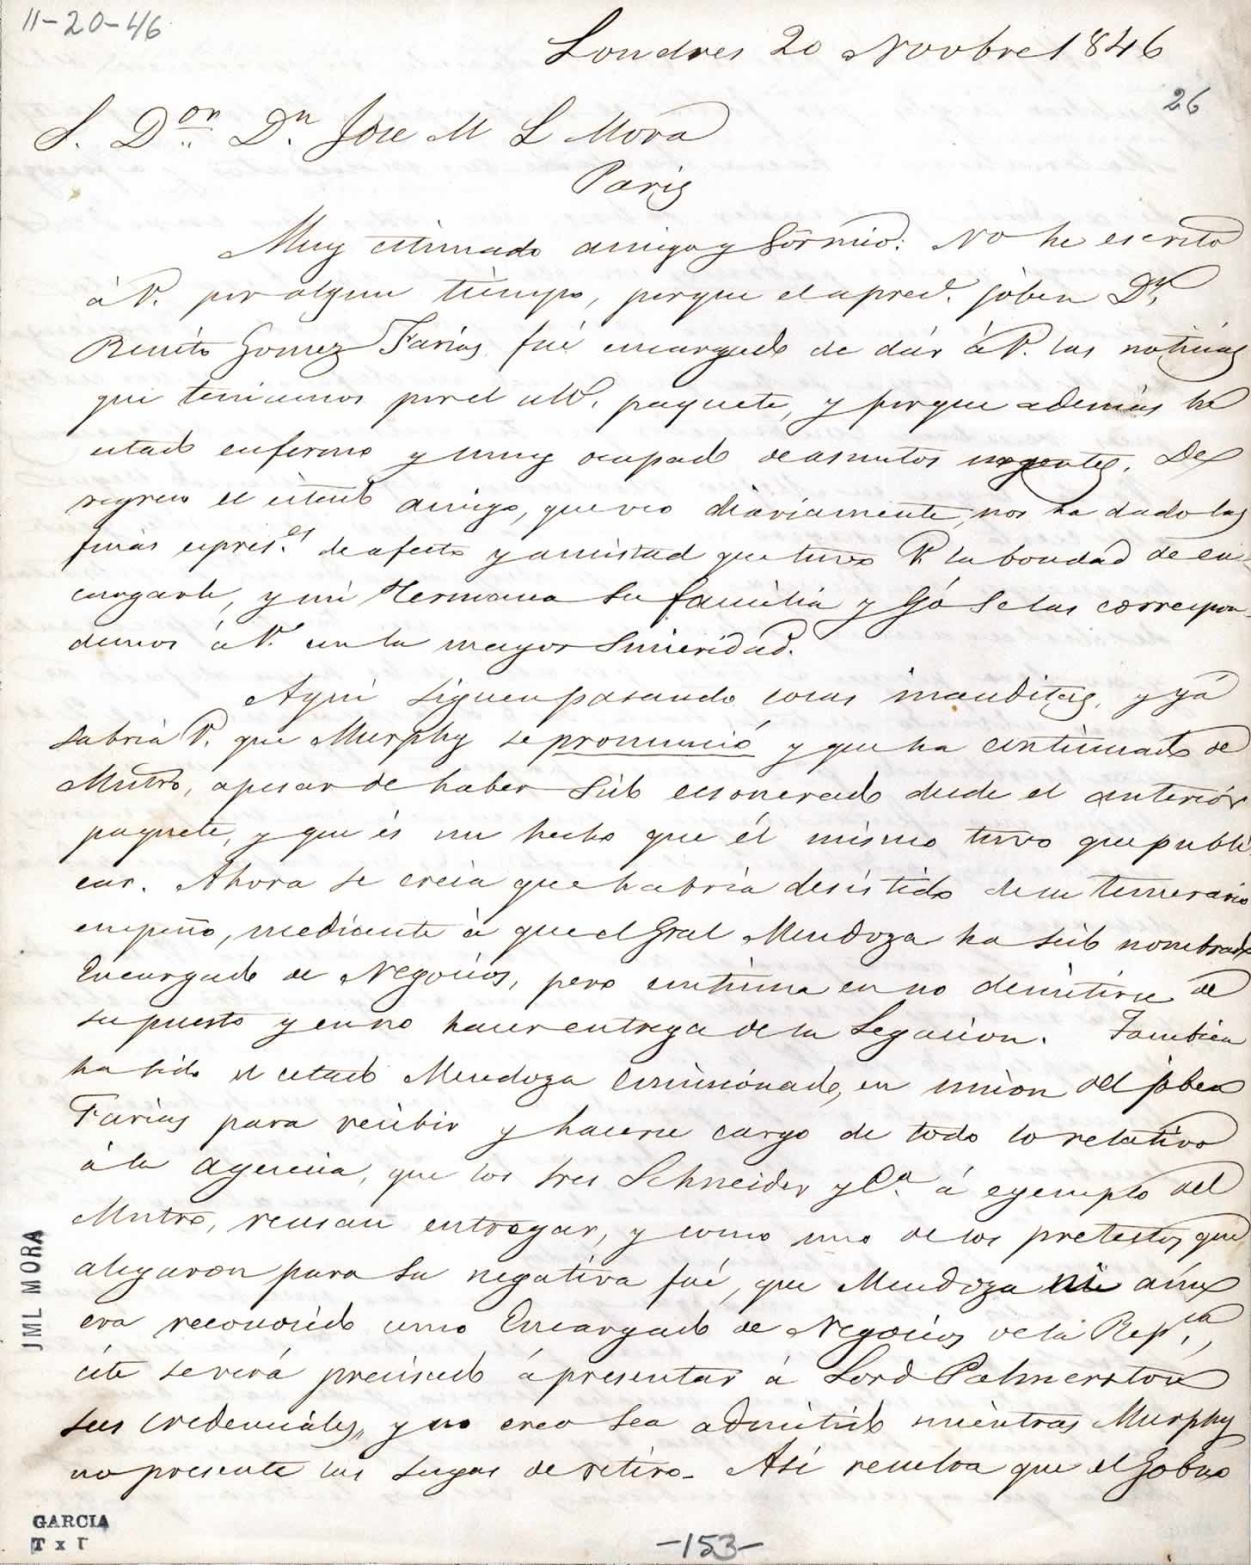 11-20-46
Londres 20 Novbre 1846
26
S. Dor. Dn. Jose M L Mora
Paris
Muy estimado amigo y Sor mio: No he escrito
á V. por algun tiempo, porque el apred. jóben Dn.
Benito Gomez Farias fué encargado de dár á V. las noticias
que teniamos por el ult. paquete, y porque además he
estado enfermo y muy ocupado de asuntos urgentes. De
regreso el citado amigo, que veo diariamente, nos ha dado las
finas espres.es de afecto y amistad que tuvo V. la bondad de en-
cargarle, y mi Hermana su familia y Yó se las correspon-
demos á V. con la mayor sinceridad.
Aqui siguen pasando cosas inauditas, y yá
sabria V. que Murphy se pronunció y que ha continuado de
Mntro, apesar de haber sido ecsonerado desde el anteriór
paquete, y que és un hecho que él mismo tuvo que publi
car. Ahora se creia que habria desistido de su temerario
empeño, mediante á que el Gral Mendoza ha sido nombrado
Encargado de Negocios, pero continua en no demitirse de
su puesto y en no hacer entrega de la Legacion. Tambien
ha sido el citado Mendoza comisionado, en union del jóben
Farias para recibir y hacerse cargo de todo lo relativo
á la agencia, que los Sres Schneider y Ca. á egemplo del
Mntro, reusan entregar, y como uno de los pretestos que
alegaron para su negativa fué, que Mendoza ni aún
era reconocido como Encargado de Negocios de la Rep.ca,
éste se verá precisado á presentar á Lord Palmerston
sus credenciales, y no creo sea admitido mientras Murphy
no presente las suyas de retiro. Asi resulta que el Gobno
JML MORA
GARCIA
T x T
-153-